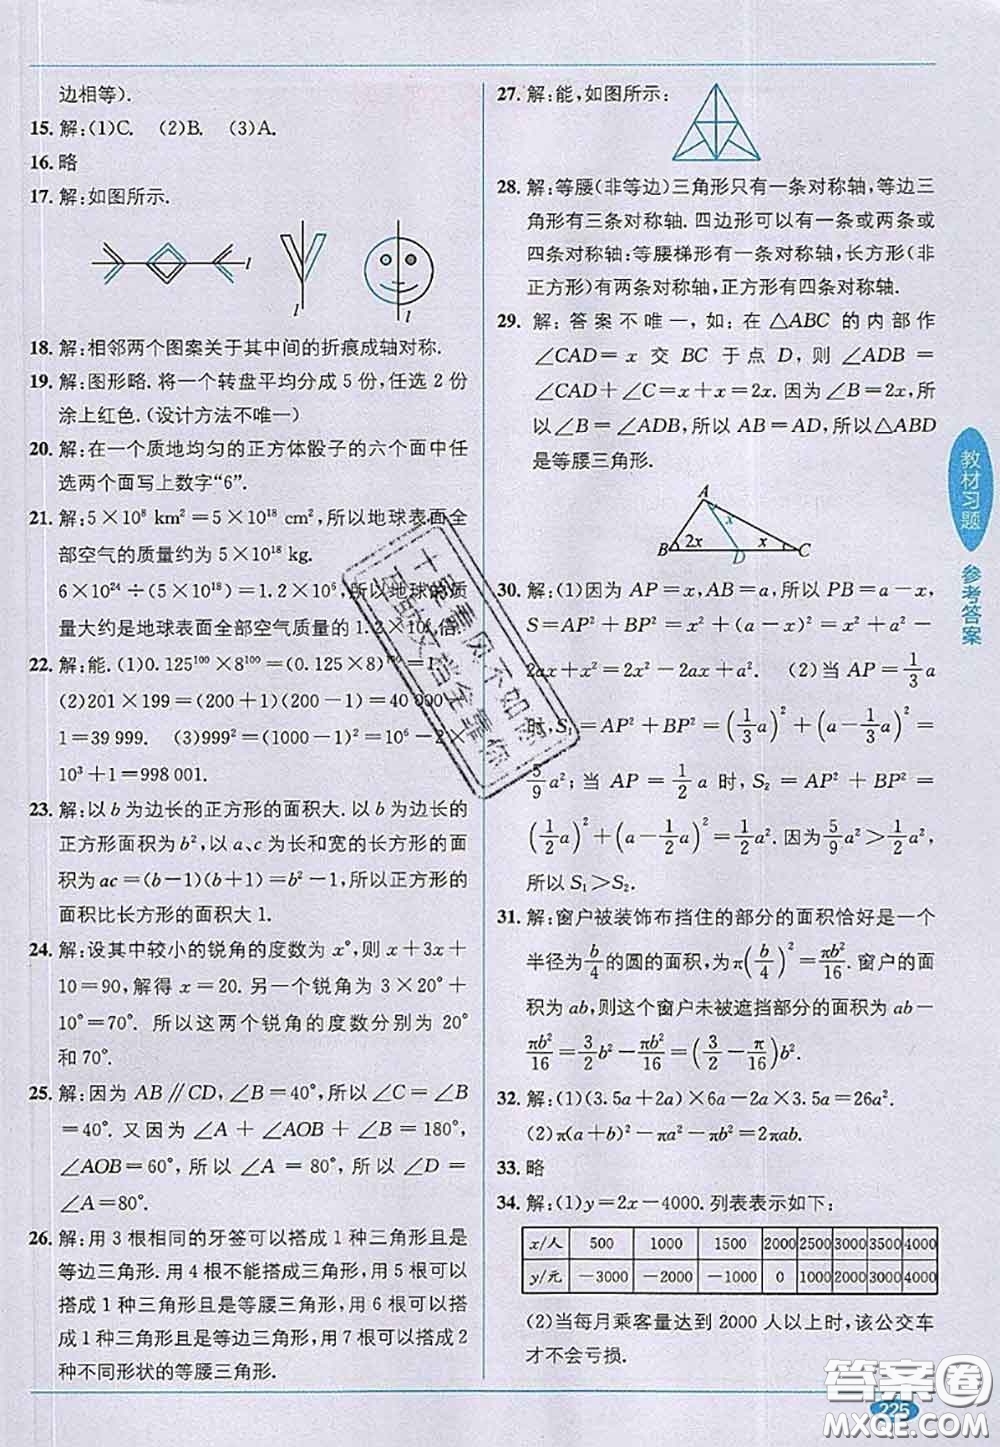 边相等).
15. 解:(1)C. (2)B. (3)A.
16. 略
17. 解:如图所示.
l
l
l
18. 解:相邻两个图案关于其中间的折痕成轴对称.
19. 解:图形略.将一个转盘平均分成 5 份,任选 2 份
涂上红色.(设计方法不唯一)
20. 解:在一个质地均匀的正方体骰子的六个面中任
选两个面写上数字“6”.
21. 解:5×10⁸ km²=5×10¹⁸ cm²,所以地球表面全
部空气的质量约为 5×10¹⁸ kg.
6×10²⁴÷(5×10¹⁸)=1.2×10⁶,所以地球的质
量大约是地球表面全部空气质量的 1.2×10⁶倍.
22. 解:能.(1)0.125¹⁰⁰×8¹⁰⁰=(0.125×8)¹⁰⁰=1
(2)201×199=(200+1)(200-1)=40 000-
1=39 999. (3)999²=(1000-1)²=10⁶-2×
10³+1=998 001.
23. 解:以 b 为边长的正方形的面积大.以 b 为边长的
正方形面积为 b²,以 a、c 为长和宽的长方形的面
积为 ac=(b-1)(b+1)=b²-1,所以正方形的
面积比长方形的面积大 1.
24. 解:设其中较小的锐角的度数为 x°,则 x+3x+
10=90,解得 x=20.另一个锐角为 3×20°+
10°=70°. 所以这两个锐角的度数分别为 20°
和 70°.
25. 解:因为 AB∥CD,∠B=40°,所以∠C=∠B
=40°. 又因为∠A+∠AOB+∠B=180°,
∠AOB=60°,所以∠A=80°,所以∠D=
∠A=80°.
26. 解:用 3 根相同的牙签可以搭成 1 种三角形且是
等边三角形.用 4 根不能搭成三角形.用 5 根可以
搭成 1 种三角形且是等腰三角形,用 6 根可以搭
成 1 种三角形且是等边三角形,用 7 根可以搭成 2
种不同形状的等腰三角形.
27. 解:能,如图所示:
28. 解:等腰(非等边)三角形只有一条对称轴,等边三
角形有三条对称轴.四边形可以有一条或两条或
四条对称轴:等腰梯形有一条对称轴,长方形(非
正方形)有两条对称轴,正方形有四条对称轴.
29. 解:答案不唯一,如:在△ABC 的内部作
∠CAD=x 交 BC 于点 D,则∠ADB=
∠CAD+∠C=x+x=2x.因为∠B=2x,所
以∠B=∠ADB,所以 AB=AD,所以△ABD
是等腰三角形.
A
x
B 2x D x C
30. 解:(1)因为 AP=x,AB=a,所以 PB=a-x,
S=AP²+BP²=x²+(a-x)²=x²+a²-
2ax+x²=2x²-2ax+a². (2)当 AP=1/3 a
时,S₁=AP²+BP²=(1/3 a)²+(a-1/3 a)²=
5/9 a²;当 AP=1/2 a 时,S₂=AP²+BP²=
(1/2 a)²+(a-1/2 a)²=1/2 a².因为 5/9 a²>1/2 a²,
所以 S₁>S₂.
31. 解:窗户被装饰布挡住的部分的面积恰好是一个
半径为 b/4 的圆的面积,为 π(b/4)²=πb²/16.窗户的面
积为 ab,则这个窗户未被遮挡部分的面积为 ab-
πb²/16=3/2 b²-πb²/16=(3/2-π/16)b².
32. 解:(1)(3.5a+2a)×6a-2a×3.5a=26a².
(2)π(a+b)²-πa²-πb²=2πab.
33. 略
34. 解:(1)y=2x-4000.列表表示如下:
x/人 500 1000 1500 2000 2500 3000 3500 4000
y/元 -3000 -2000 -1000 0 1000 2000 3000 4000
(2)当每月乘客量达到 2000 人以上时,该公交车
才不会亏损.
教材习题
参考答案
225
答案圈
MXQE.COM